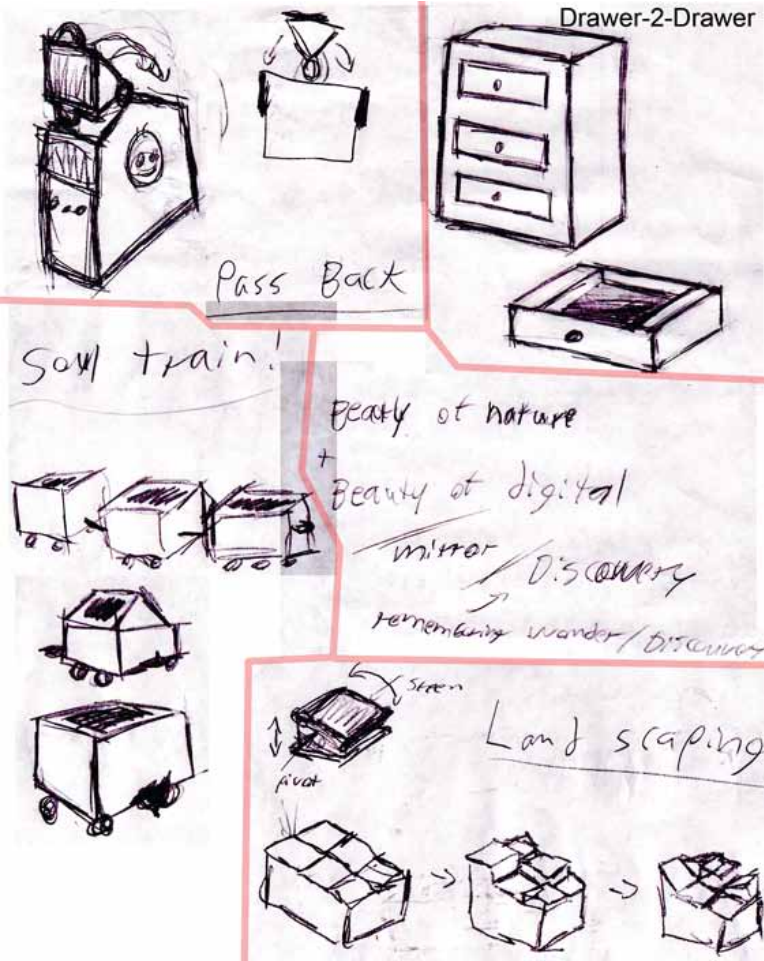 Drawer-2-Drawer
Pass Back
Soul train!
Beauty of nature
+
Beauty of digital
mirror / Discovery
remembering wonder / Discovery
Screen
pivot
Land scaping